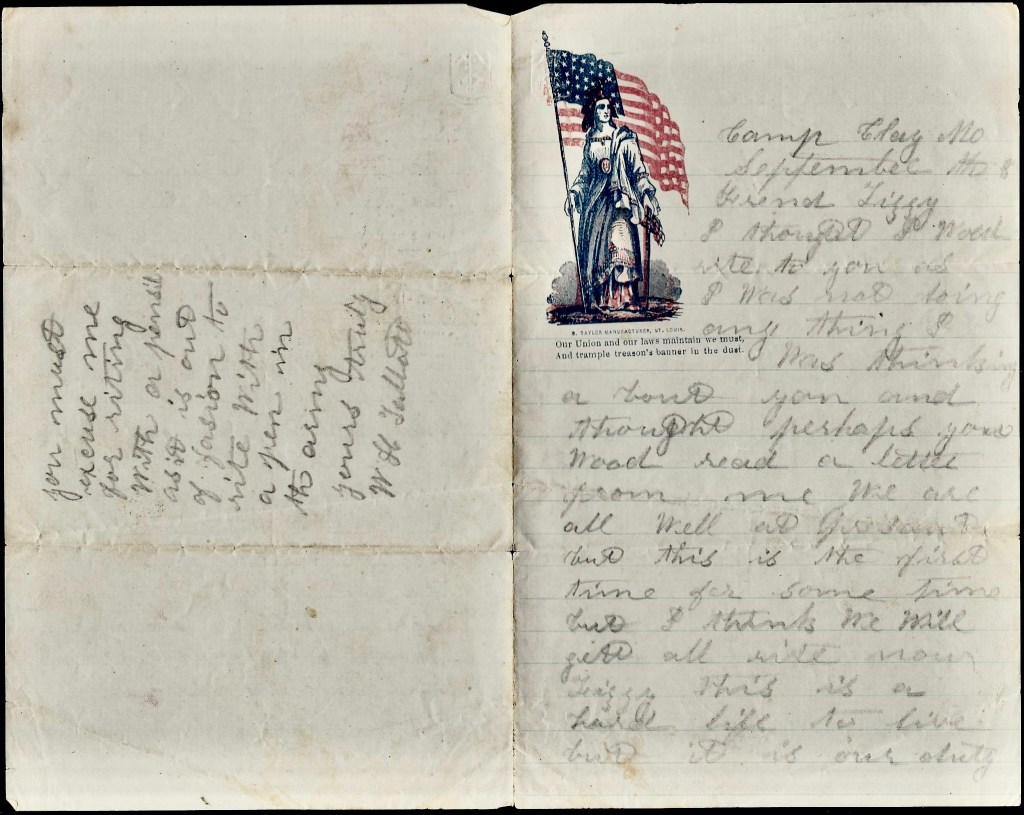 Camp Clay Mo
September th 8
Frend Lizzy
I thought I Wood
rite to you as
I Was not doing
any thing I
Was thinking
a bout you and
thought perhaps you
Wood read a letter
from me We are
all Well at Presant
but this is the first
time for some time
but I think We Will
gett all rite now
Lizzy this is a
hard life to live
but it is our duty
S. TAYLOR MANUFACTURER, ST. LOUIS.
Our Union and our laws maintain we must,
And trample treason's banner in the dust.
you must
excuse me
for riting
With a pensil
as it is out
of fasion to
rite With
a pen in
th army
yours truly
W H